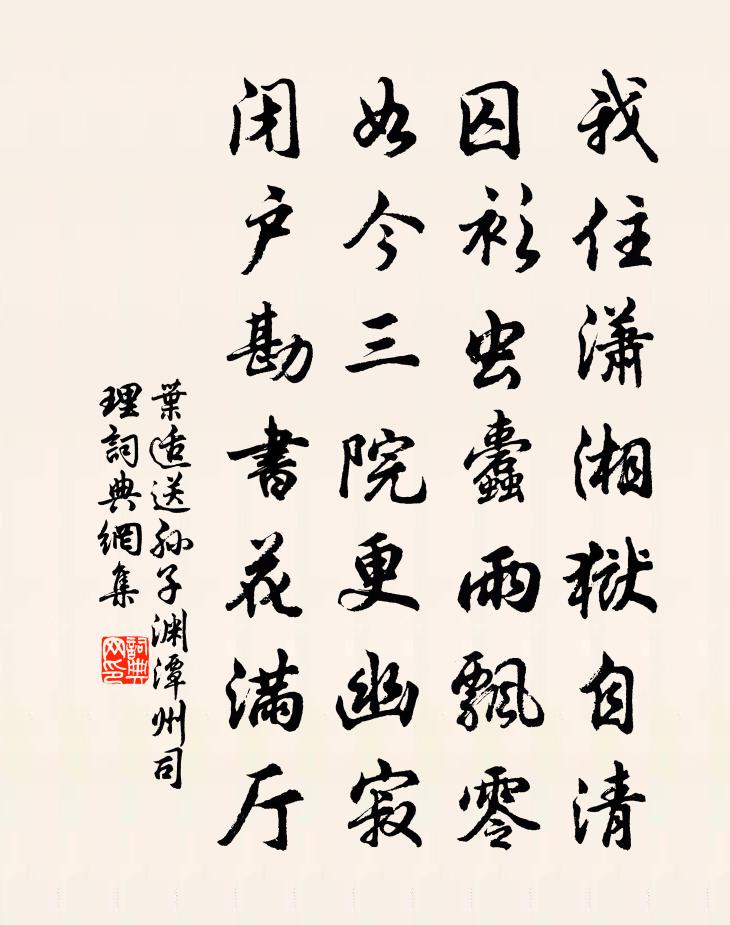 我住瀟湘獄自清
囚衫虫蠹雨飄零
如今三院更幽寂
闭户勘書花滿厅
葉适送孙子渊潭州司
理詞典網集
詞典
网印